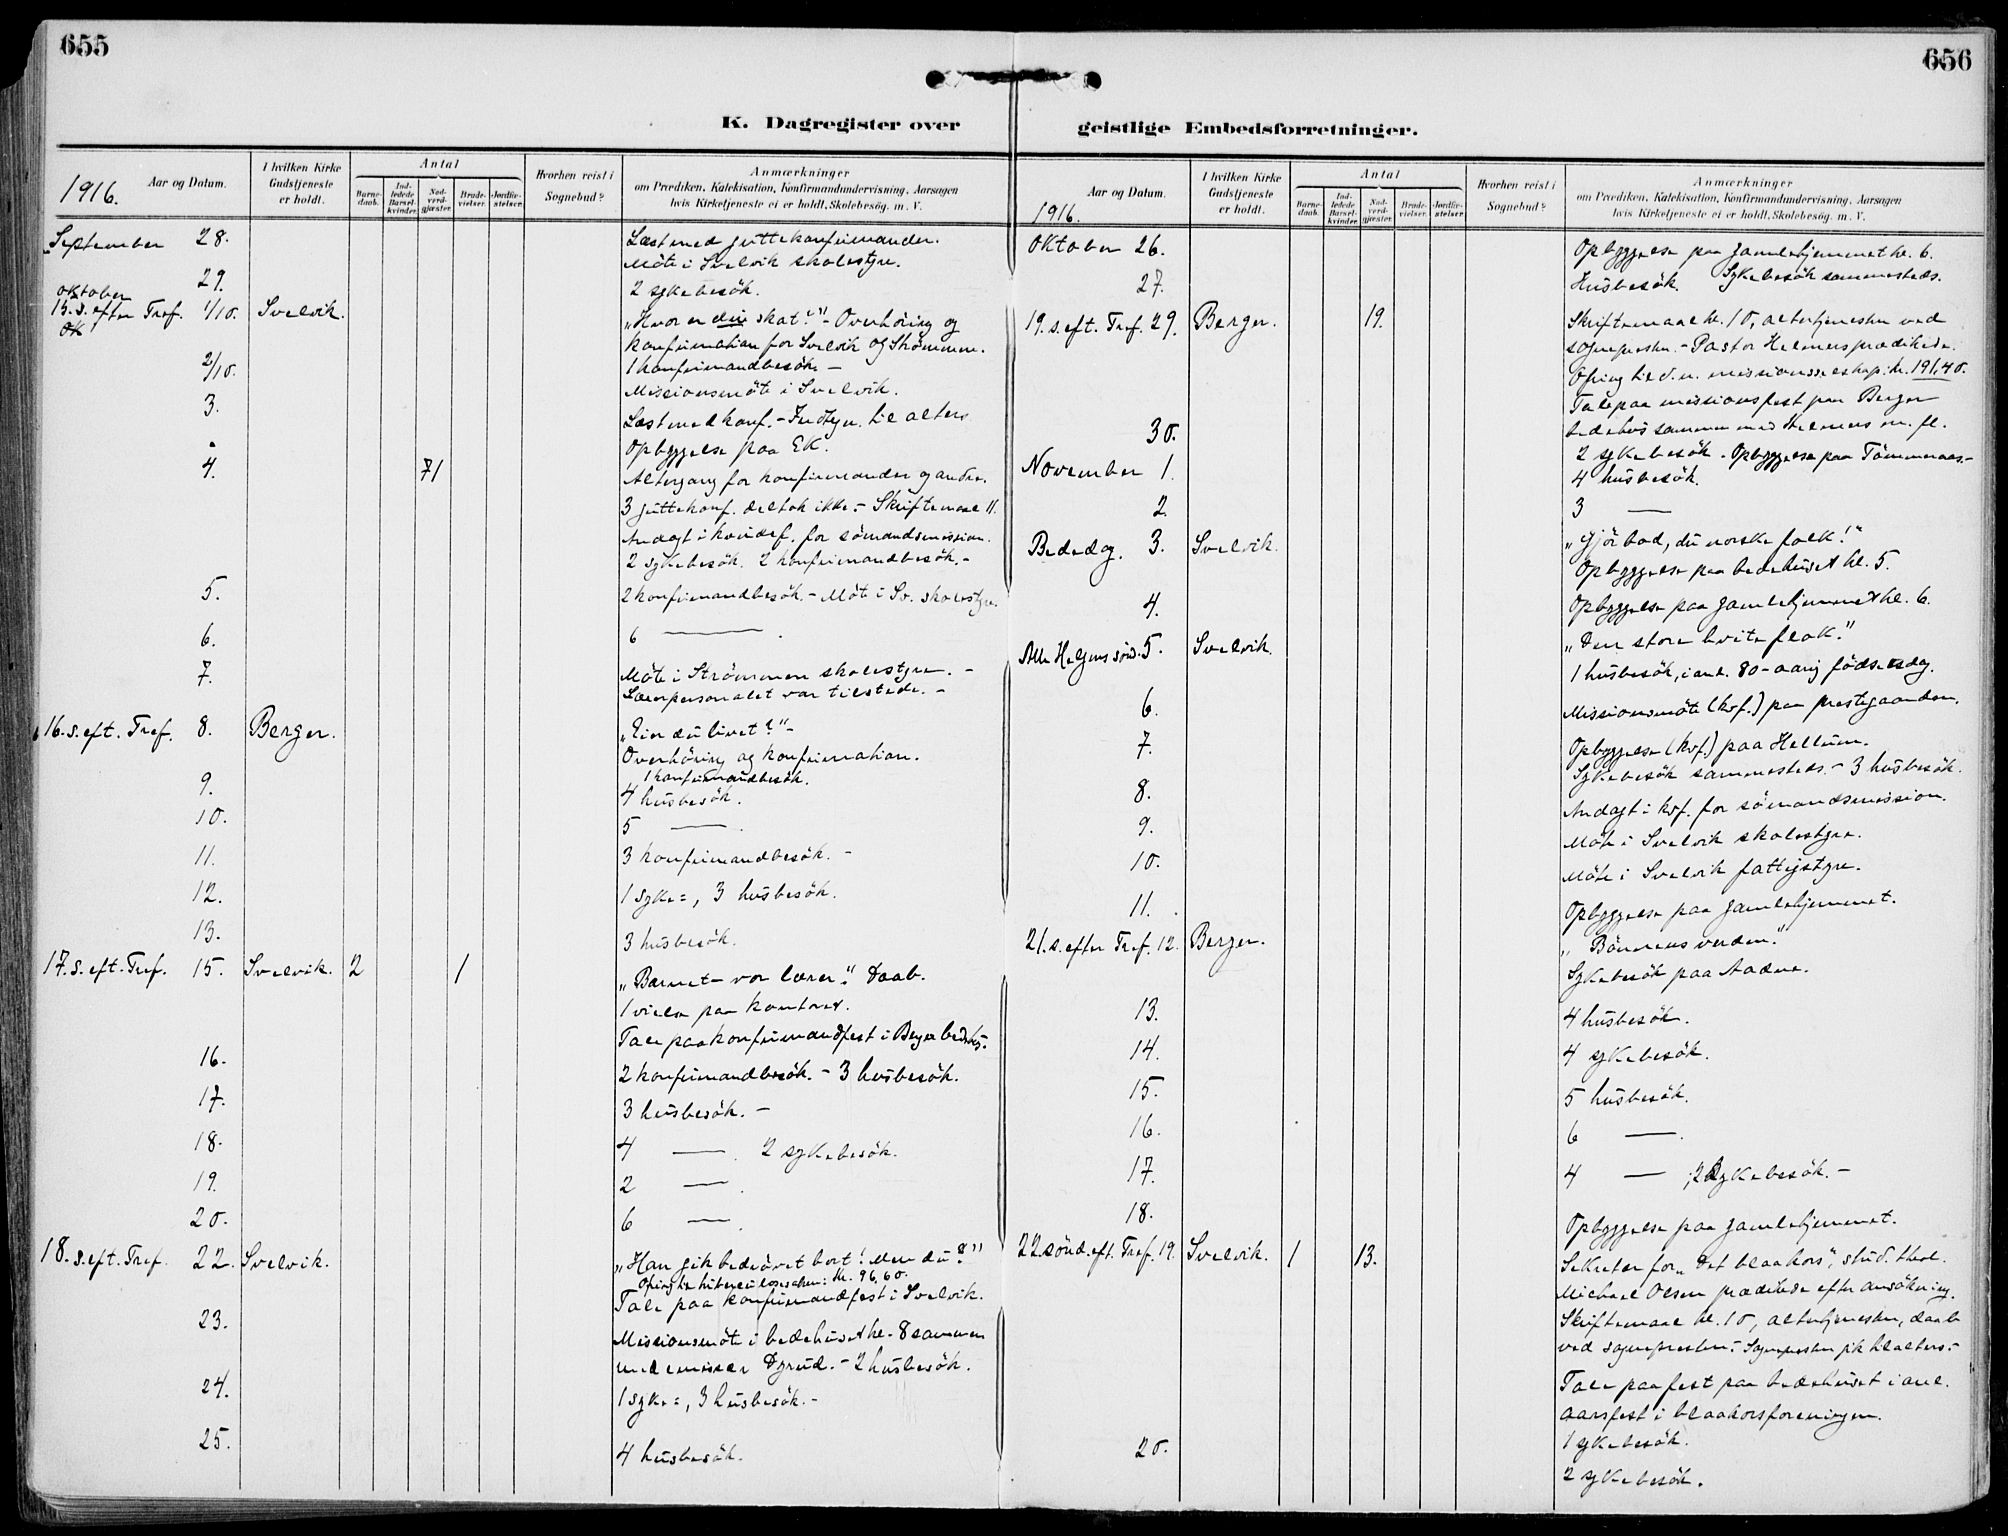 655
K. Dagregister over
1916.
Aar og Datum.
I hvilken Kirke Gudstjeneste er holdt.
Antal
Barnedaab.
Indledede Barselkvinder.
Nadverdgjæster.
Brudevielser.
Jordfæstelser.
Hvorhen reist i Sognebud?
Anmærkninger
om Prædiken, Katekisation, Konfirmandundervisning, Aarsagen
hvis Kirketjeneste ei er holdt, Skolebesøg. m. V.
September 28. Læst med guttekonfirmander.
Möte i Svelvik skolestyre.
29. 2 sykebesök.
oktober
15. s. efter Tref. 1/10. Svelvik. „Hvor er din skat?" - Overhöring og
Ok
konfirmation for Svelvik og Strömmen.
2/10. 1 konfirmandbesök. -
Missionsmöte i Svelvik.
3. Læst med konf. - til alters
Opbyggelse paa EK.
4. 71 Altergang for konfirmander og andre.
3 guttekonf. deltok ikke. - Skriftemaal 11.
Andagt i kvindef. for sömandsmission.
2 sykebesök. 2 konfirmandbesök. -
5. 2 konfirmandbesök. - Möte i Sv. skolestyre.
6. 6 —
7. Möte i Strömmen skolestyre. -
Lærerpersonalet var tilstede. -
16. s. eft. Tref. 8. Berger. „Eier du livet?" -
Overhöring og konfirmation.
1 konfirmandbesök.
9. 4 husbesök.
10. 5 — .
11. 3 konfirmandbesök. -
12. 1 syke=, 3 husbesök.
13. 3 husbesök.
17. s. eft. Tref. 15. Svelvik. 2 1 „Barnet - vor lærer." Daab.
1 vielse paa kontoret.
Tale paa konfirmandfest i Berger bedehus.
16. 2 konfirmandbesök. - 3 husbesök.
17. 3 husbesök. -
18. 4 — . 2 sykebesök.
19. 2 — .
20. 6 — .
18. s. eft. Tref. 22. Svelvik. „Han gik bedrövet bort! Men du?"
Ofring til tuberculosesaken: kr. 96,60.
Tale paa konfirmandfest i Svelvik.
23. Missionsmöte i bedehuset kl. 8 sammen
med emissær . - 2 husbesök.
24. 1 syke=, 3 husbesök. -
25. 4 husbesök.
656
geistlige Embedsforretninger.
1916.
Aar og Datum.
I hvilken Kirke Gudstjeneste er holdt.
Antal
Barnedaab.
Indledede Barselkvinder.
Nadverdgjæster.
Brudevielser.
Jordfæstelser.
Hvorhen reist i Sognebud?
Anmærkninger
om Prædiken, Katekisation, Konfirmandundervisning, Aarsagen
hvis Kirketjeneste ei er holdt, Skolebesøg. m. V.
Oktober 26. Opbyggelse paa gamlehjemmet kl. 6.
27. Husbesök. Sykebesök sammesteds.
19. s. eft. Tref. 29. Berger. 19. Skriftemaal kl. 10, altertjenesten ved
sognepresten. - Pastor Helmers prædikede.
Ofring til d. n. missionsselskap: kr. 191,40.
Tale paa missionsfest paa Berger
bedehus sammen med Helmers m. fl.
30. 2 sykebesök. Opbyggelse paa Tömmeraas. -
November 1. 4 husbesök.
2. 3 —
Bededag. 3. Svelvik. „Gjör bod, du norske folk!"
Opbyggelse paa bedehuset kl. 5.
4. Opbyggelse paa gamlehjemmet kl. 6.
Alle Helgens sönd. 5. Svelvik. „Den store hvite flok."
1 husbesök, i anl. 80-aarig födselsdag.
6. Missionsmöte (kvf.) paa prestegaarden.
7. Opbyggelse (kvf.) paa Hellum.
Sykebesök sammesteds. - 3 husbesök.
8. Andagt i kvf. for sömandsmission.
9. Möte i Svelvik skolestyre.
10. Möte i Svelvik fattigstyre.
11. Opbyggelse paa gamlehjemmet.
21. s. efter Tref. 12. Berger. „Bönnens verden."
Sykebesök paa .
13. 4 husbesök.
14. 4 sykebesök.
15. 5 husbesök.
16. 6 — .
17. 4 — ; 2 sykebesök. -
18. Opbyggelse paa gamlehjemmet.
22. sönd. eft. Tref. 19. Svelvik. 1 13. Sekretær for „Det blaa kors", stud. theol.
Michael Olsen prædikede efter ansökning.
Skriftemaal kl. 10, altertjenesten, daab
ved sognepresten. - Sognepresten gik til alters. -
Tale paa fest paa bedehuset i anl.
aarsfest i blaakorsforeningen.
1 sykebesök.
20. 2 sykebesök.